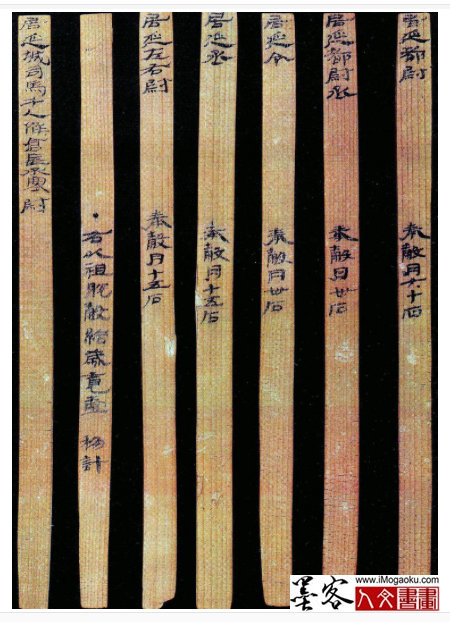 居延都尉 奉穀月六十石
居延都尉丞 奉穀月卅石
居延令 奉穀月卅石
居延丞 奉穀月十五石
居延左右尉 奉穀月十五石
·右以祖脫穀給歲竟壹移計
居延城司馬千人候倉長丞塞尉
墨客
www.iMogaoku.com
人文書畫